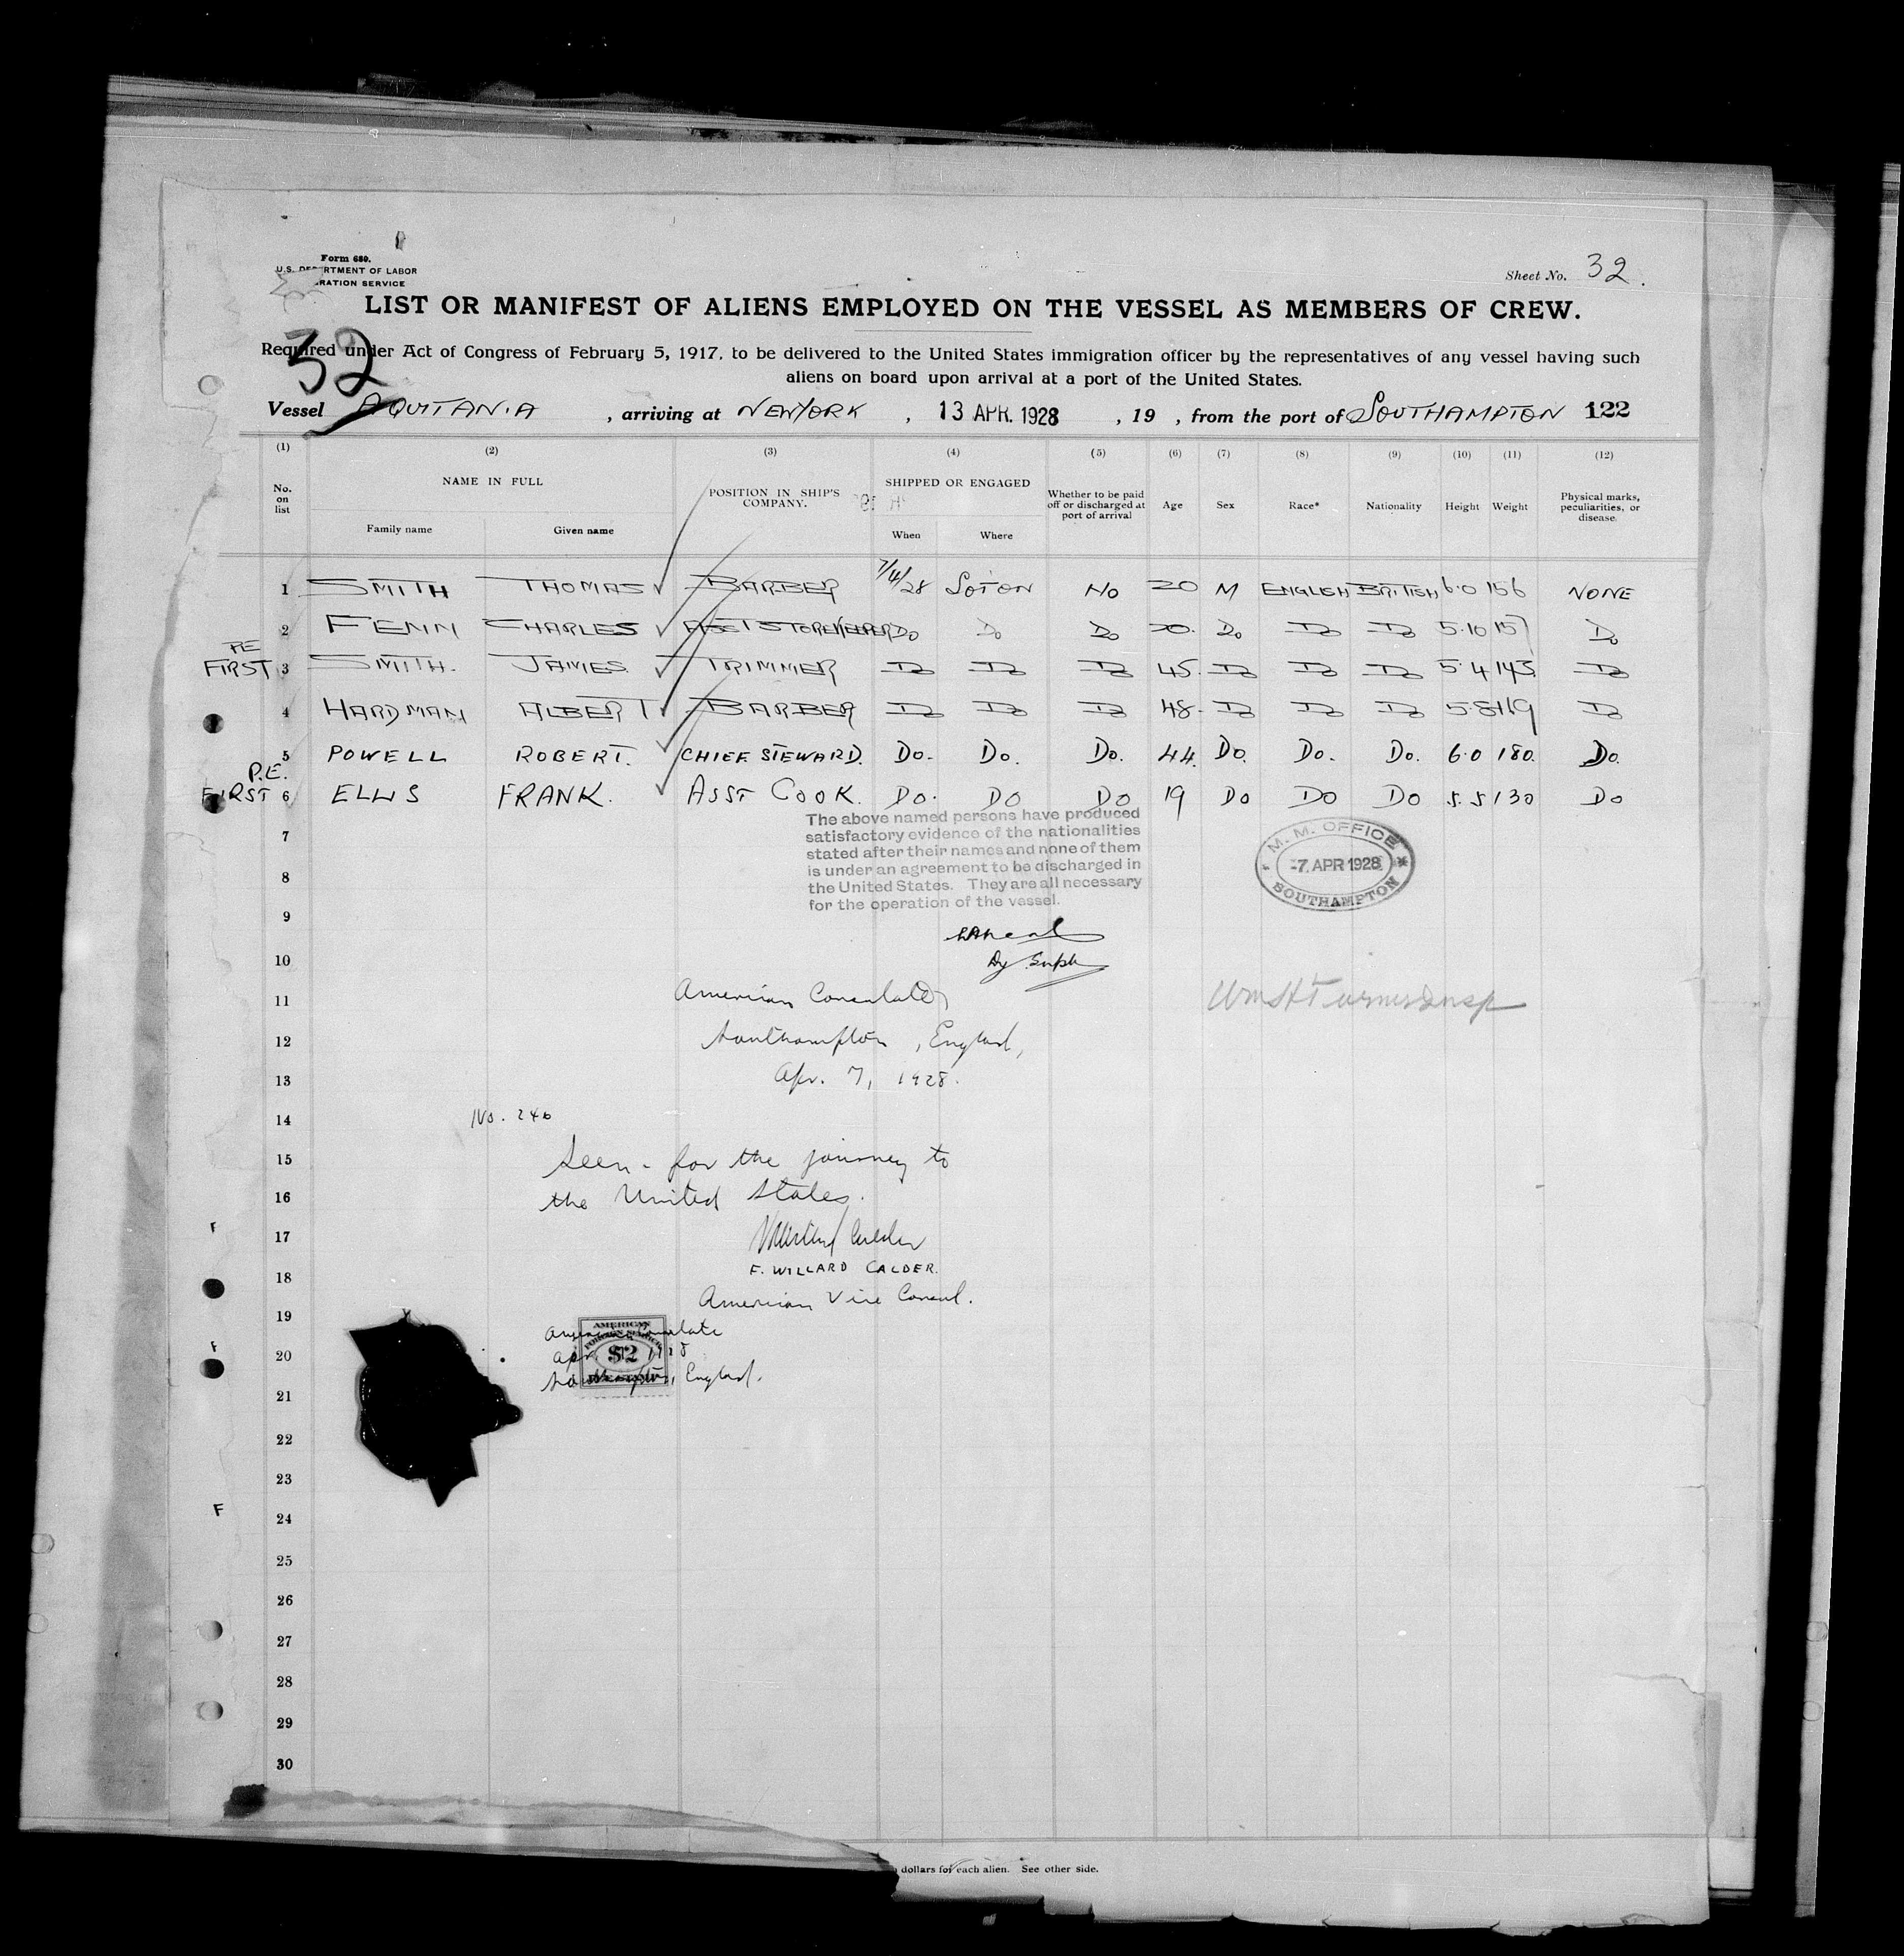 Form 680.
U.S. DEPARTMENT OF LABOR
RATION SERVICE
Sheet No. 32.
LIST OR MANIFEST OF ALIENS EMPLOYED ON THE VESSEL AS MEMBERS OF CREW.
32
Required under Act of Congress of February 5, 1917, to be delivered to the United States immigration officer by the representatives of any vessel having such
aliens on board upon arrival at a port of the United States.
Vessel AQUITANIA , arriving at NEW YORK , 13 APR. 1928 , 19 , from the port of SOUTHAMPTON 122
(1) (2) (3) (4) (5) (6) (7) (8) (9) (10) (11) (12)
No. on list NAME IN FULL Family name Given name POSITION IN SHIP'S COMPANY. SHIPPED OR ENGAGED When Where Whether to be paid off or discharged at port of arrival Age Sex Race* Nationality Height Weight Physical marks, peculiarities, or disease.
1 SMITH THOMAS BARBER 7/4/28 SOTON NO 20 M ENGLISH BRITISH 6.0 156 NONE
2 FENN CHARLES ASST STOREKEEPER DO DO DO 20. DO DO DO 5.10 157 DO
PE
FIRST 3 SMITH. JAMES TRIMMER DO DO DO 45. DO DO DO 5.4 143 DO
4 HARDMAN ALBERT BARBER DO DO DO 48. DO DO DO 5.8 169 DO
5 POWELL ROBERT. CHIEF STEWARD. DO. DO. DO. 44. DO. DO. DO. 6.0 180. DO.
P.E.
FIRST 6 ELLIS FRANK. ASST COOK. DO. DO DO 19 DO DO DO 5.5 130 DO
The above named persons have produced
satisfactory evidence of the nationalities
stated after their names and none of them
is under an agreement to be discharged in
the United States. They are all necessary
for the operation of the vessel.
M. M. OFFICE
-7 APR 1928
SOUTHAMPTON
Dy Supt
American Consulate
Wm H Turner Insp
Southampton, England,
Apr. 7, 1928.
No. 246
Seen - for the journey to
the United States.
F. WILLARD CALDER.
American Vice Consul.
American Consulate
AMERICAN
$2
Apr. 1928
Southampton, England.
7
8
9
10
11
12
13
14
15
16
17
18
19
20
21
22
23
24
25
26
27
28
29
30
F
F
F
dollars for each alien. See other side.